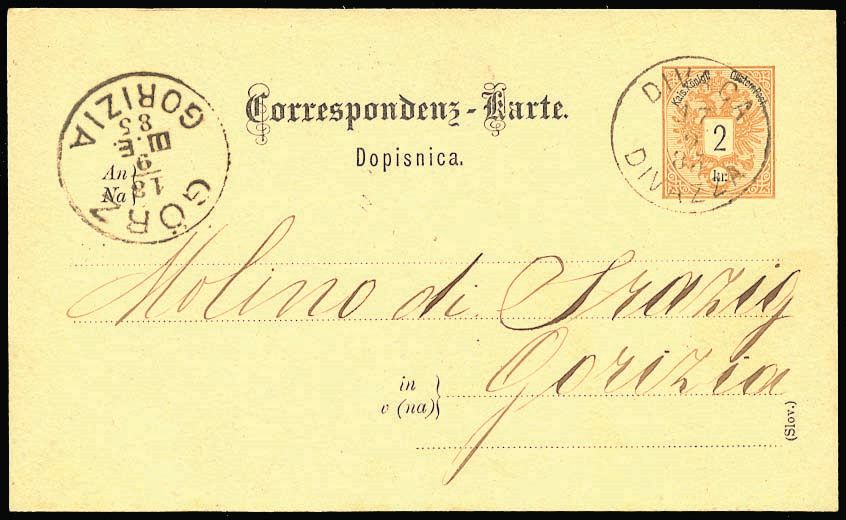 Correspondenz-Karte.
Dopisnica.
Kais. Königl. Oesterr. Post
2
kr.
DIVAČA
DIVAZZA
GÖRZ
18
9
III.E
85
GORIZIA
An
Na
Molino di
Gorizia
in
v (na)
(Slov.)